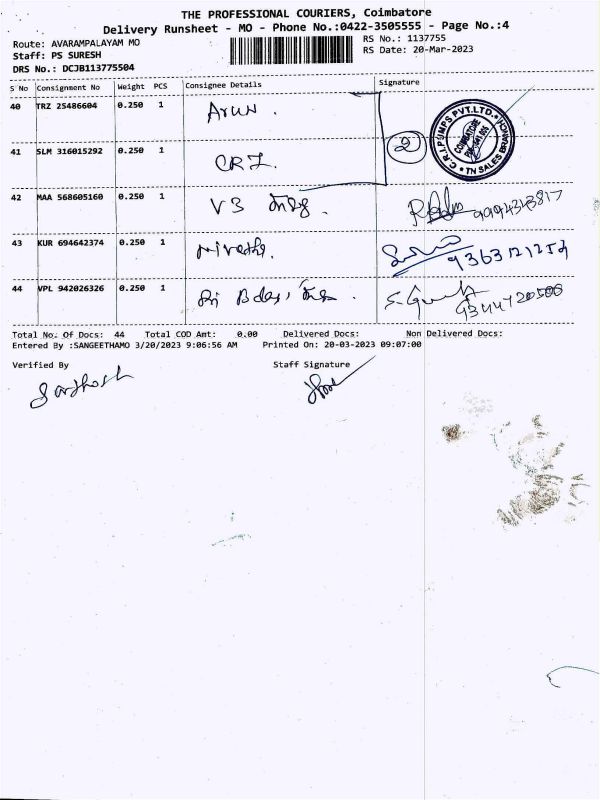 THE PROFESSIONAL COURIERS, Coimbatore
Delivery Runsheet - MO - Phone No.:0422-3505555 - Page No.:4
Route: AVARAMPALAYAM MO
RS No.: 1137755
Staff: PS SURESH
RS Date: 20-Mar-2023
DRS No.: DCJB113775504
S No Consignment No Weight PCS Consignee Details Signature
40 TRZ 25486604 0.250 1 Arun.
C.R.I.PUMPS PVT.LTD. TN SALES BRANCH
COIMBATORE
2
41 SLM 316015292 0.250 1 CRI.
42 MAA 568605160 0.250 1 V3
43 KUR 694642374 0.250 1 Nivetha. 9363121254
44 VPL 942026326 0.250 1
Total No. Of Docs: 44 Total COD Amt: 0.00 Delivered Docs: Non Delivered Docs:
Entered By :SANGEETHAMO 3/20/2023 9:06:56 AM Printed On: 20-03-2023 09:07:00
Verified By Staff Signature
Santhosh